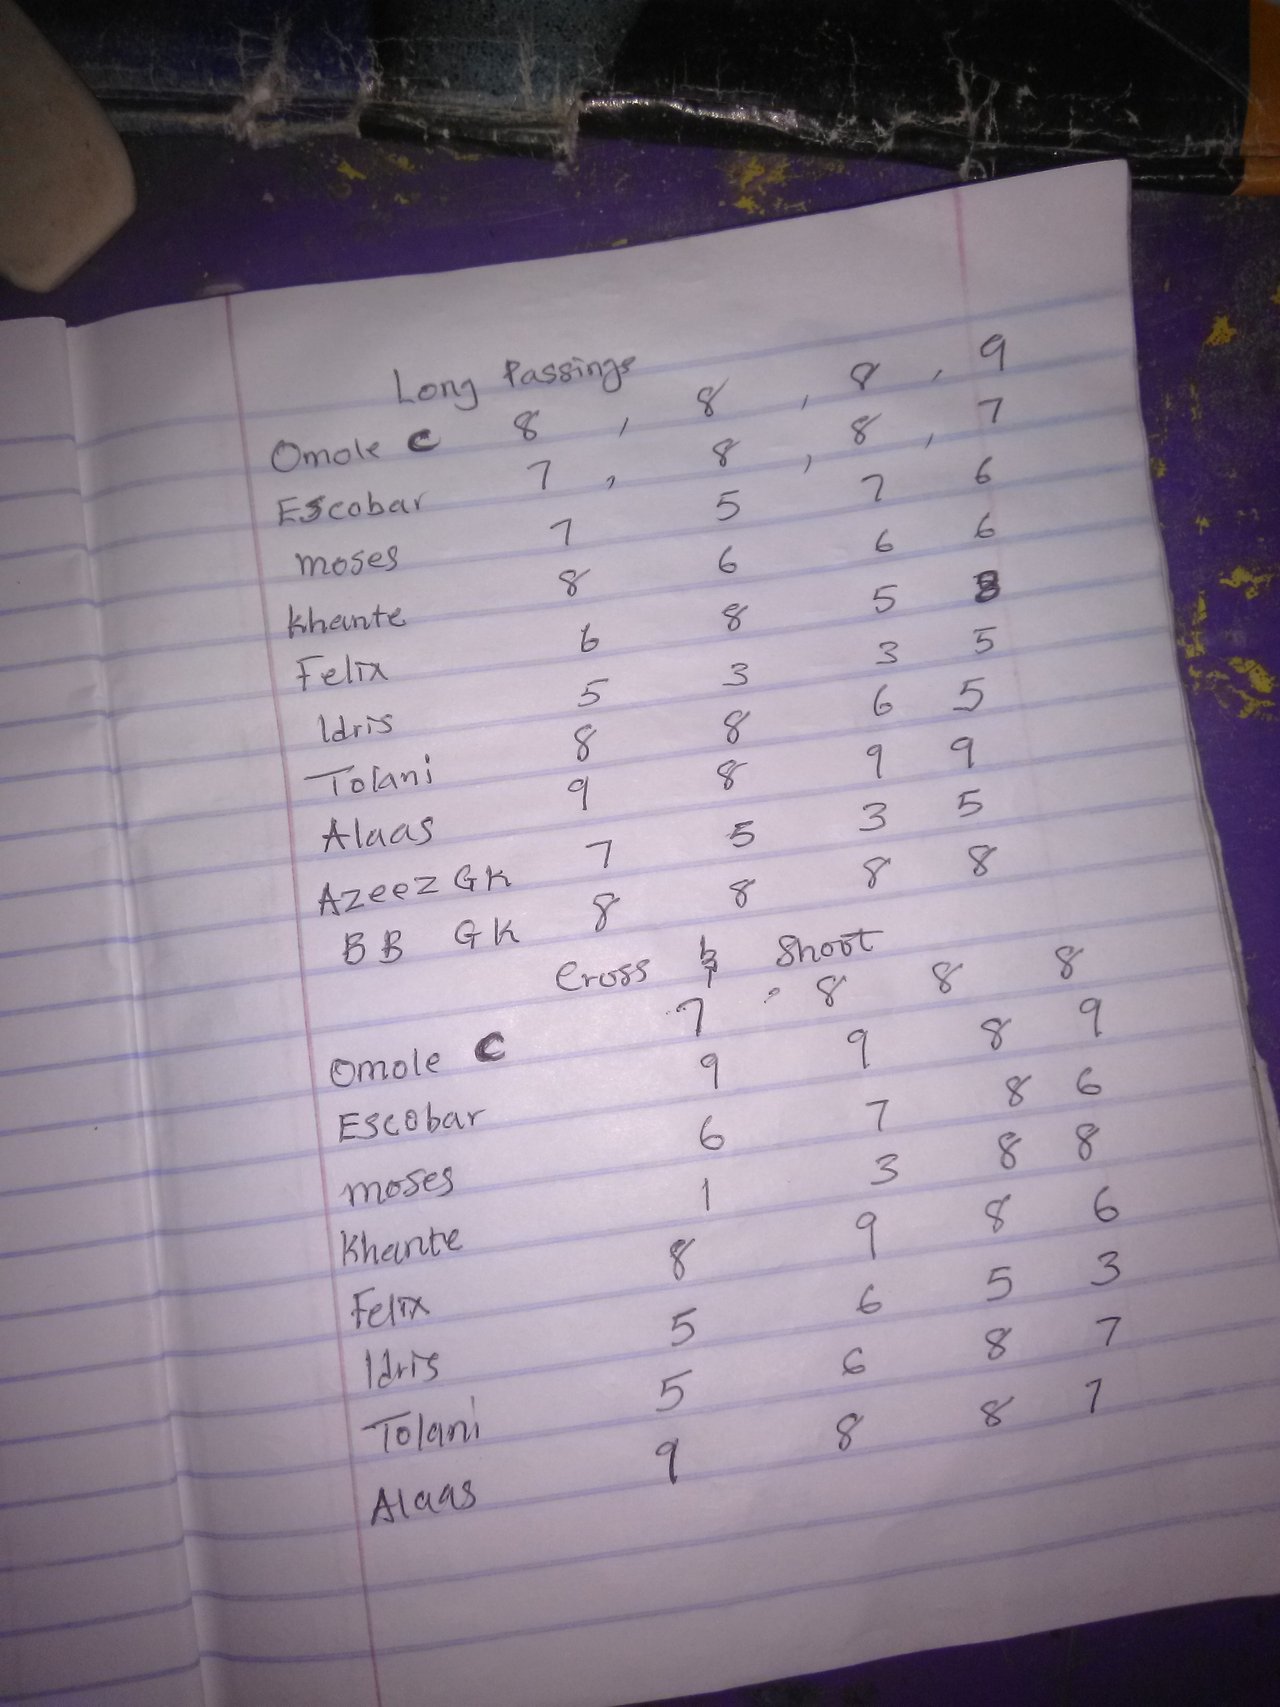 Long Passings
Omole C 8 , 8 , 8 , 9
Escobar 7 , 8 , 8 , 7
moses 7 5 7 6
Khante 8 6 6 6
Felix 6 8 5 8
Idris 5 3 3 5
Tolani 8 8 6 5
Alaas 9 8 9 9
Azeez GK 7 5 3 5
BB GK 8 8 8 8
Cross & Shoot
Omole C 7 . 8 8 8
Escobar 9 9 8 9
moses 6 7 8 6
Khante 1 3 8 8
Felix 8 9 8 6
Idris 5 6 5 3
Tolani 5 6 8 7
Alaas 9 8 8 7